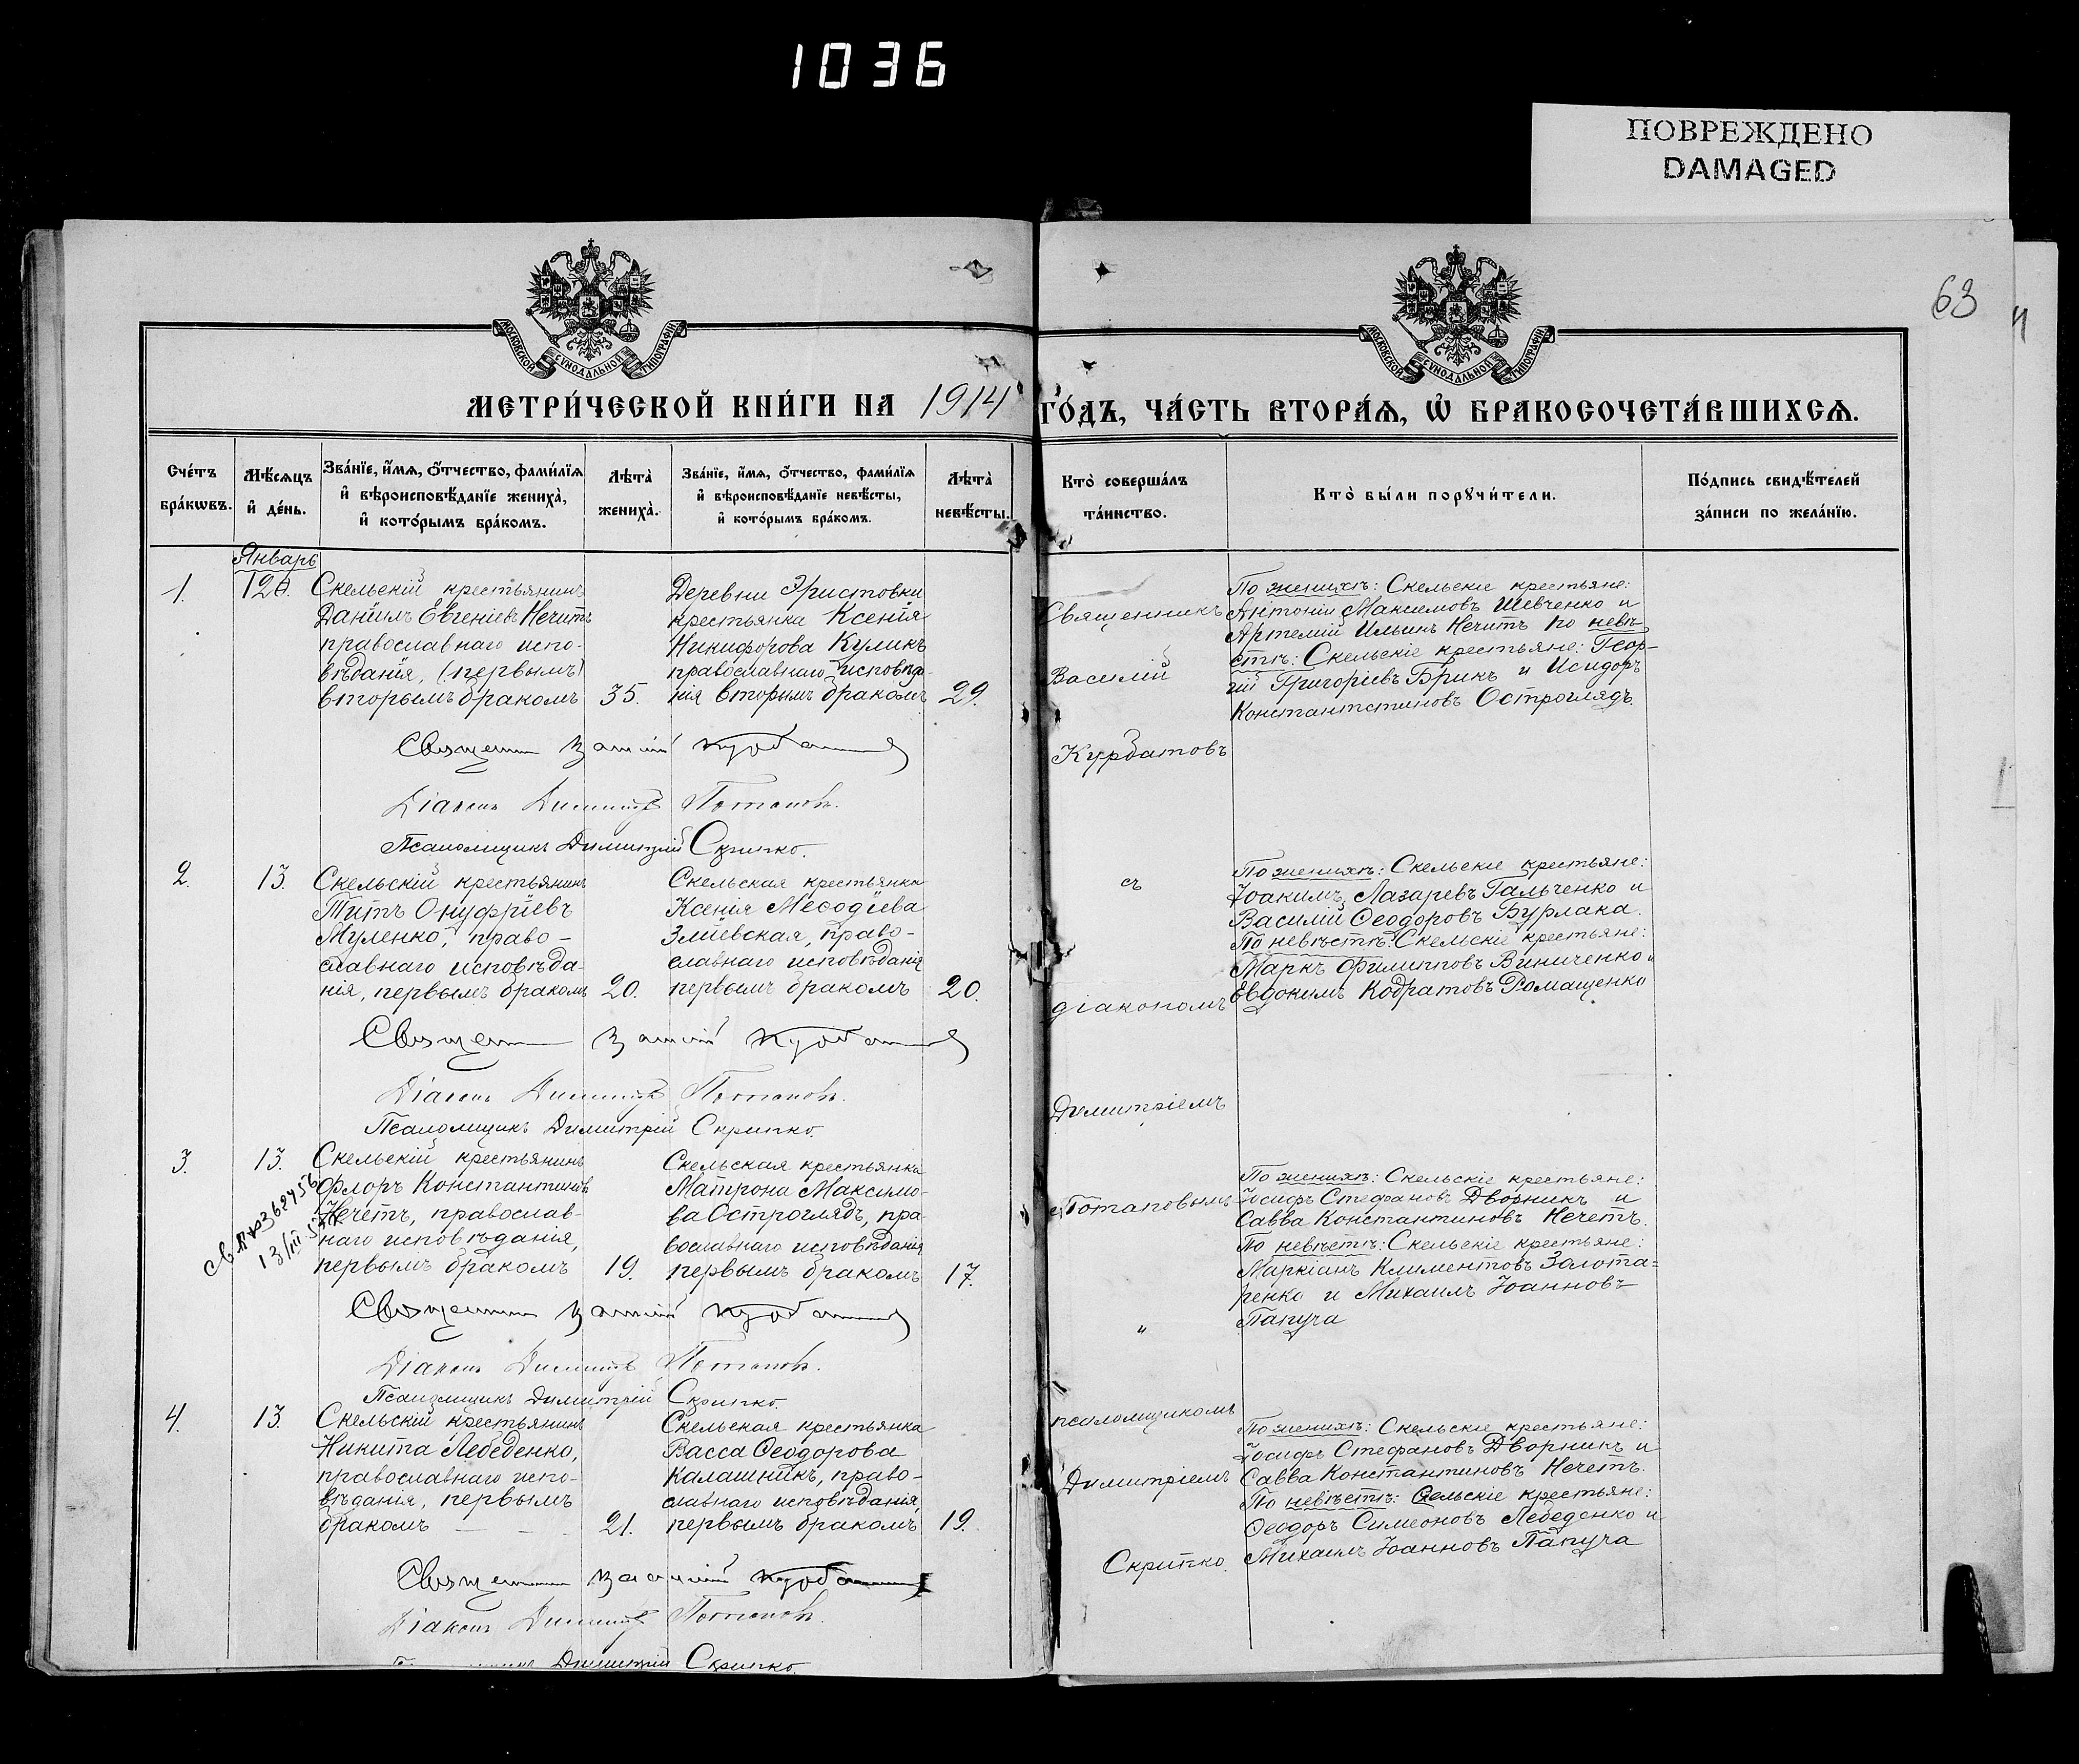 1036
ПОВРЕЖДЕНО
DAMAGED
63
МОСКОВСКОЙ СУНОДАЛЬНОЙ ТИПОГРАФІИ
МОСКОВСКОЙ СУНОДАЛЬНОЙ ТИПОГРАФІИ
МЕТРИ́ЧЕСКОЙ КНИ́ГИ НА 1914 ГО́ДЪ, ЧА́СТЬ ВТОРА́Ѧ, Ѡ҆ БРАКОСОЧЕТА́ВШИХСѦ.
Сче́тъ
бра́кѡвъ.
Мѣ́сѧцъ
и҆ де́нь.
Зва́нїе, и҆́мѧ, ѻ҆́тчество, фами́лїѧ
и҆ вѣроисповѣ́данїе жениха̀,
и҆ кото́рымъ бра́комъ.
Лѣта̀
жениха̀.
Зва́нїе, и҆́мѧ, ѻ҆́тчество, фами́лїѧ
и҆ вѣроисповѣ́данїе невѣ́сты,
и҆ кото́рымъ бра́комъ.
Лѣта̀
невѣ́сты.
Кто̀ соверша́лъ
та́инство.
Кто̀ бы́ли порꙋчи́тели.
По́дпись свидѣ́телей
за́писи по жела́нїю.
Январь
1.
12
Скельскій крестьянинъ
Даніилъ Евгеніевъ Нечитъ
православнаго испо-
вѣданія, (первымъ)
вторымъ бракомъ
35.
Деревни Эристовки
крестьянка Ксенія
Никифорова Куликъ
православнаго исповѣда-
нія вторымъ бракомъ
29.
По женихѣ: Скельскіе крестьяне:
Антоній Максимовъ Шевченко и
Артемій Ильинъ Нечитъ по невѣ-
стѣ: Скельскіе крестьяне: Геор-
гій Григоріевъ Брикъ и Исидоръ
Константстиновъ Остроглядъ.
Священникъ
Василій
Курбатовъ
Діаконъ Димитрій Потаповъ.
Псаломщикъ Димитрій Скрипко.
2.
13.
Скельскій крестьянинъ
Титъ Онуфріевъ
Муленко, право-
славнаго исповѣда-
нія, первымъ бракомъ
20.
Скельская крестьянка
Ксенія Меѳодіева
Зліевская, право-
славнаго исповѣданія
первымъ бракомъ
20.
съ
діакономъ
Димитріемъ
По женихѣ: Скельскіе крестьяне:
Іоакимъ Лазаревъ Гальченко и
Василій Ѳеодоровъ Бурлака.
По невѣстѣ: Скельскіе крестьяне:
Маркъ Филипповъ Виниченко и
Евдокимъ Кодратовъ Ромащенко
Діаконъ Димитрій Потаповъ.
Псаломщикъ Димитрій Скрипко.
3.
13.
Скельскій крестьянинъ
Флоръ Константиновъ
Нечетъ, православ-
наго исповѣданія,
первымъ бракомъ
19.
Скельская крестьянка
Матрона Максимо-
ва Остроглядъ, пра-
вославнаго исповѣданія
первымъ бракомъ
17.
Потаповымъ
"
По женихѣ: Скельскіе крестьяне:
Іосифъ Стефановъ Дворникъ и
Савва Константиновъ Нечетъ.
По невѣстѣ: Скельскіе крестьяне:
Маркіанъ Климентовъ Золота-
ренко и Михаилъ Іоанновъ
Папуча
Діаконъ Димитрій Потаповъ.
Псаломщикъ Димитрій Скрипко.
4.
13.
Скельскій крестьянинъ
Никита Лебеденко,
православнаго испо-
вѣданія, первымъ
бракомъ
21.
Скельская крестьянка
Васса Ѳеодорова
Калашникъ, право-
славнаго исповѣданія,
первымъ бракомъ
19.
псаломщикомъ
Димитріемъ
Скрипко.
По женихѣ: Скельскіе крестьяне:
Іосифъ Стефановъ Дворникъ и
Савва Константиновъ Нечетъ.
По невѣстѣ: Скельскіе крестьяне:
Ѳеодоръ Симеоновъ Лебеденко и
Михаилъ Іоанновъ Папуча
Діаконъ Димитрій Потаповъ.
Димитрій Скрипко.